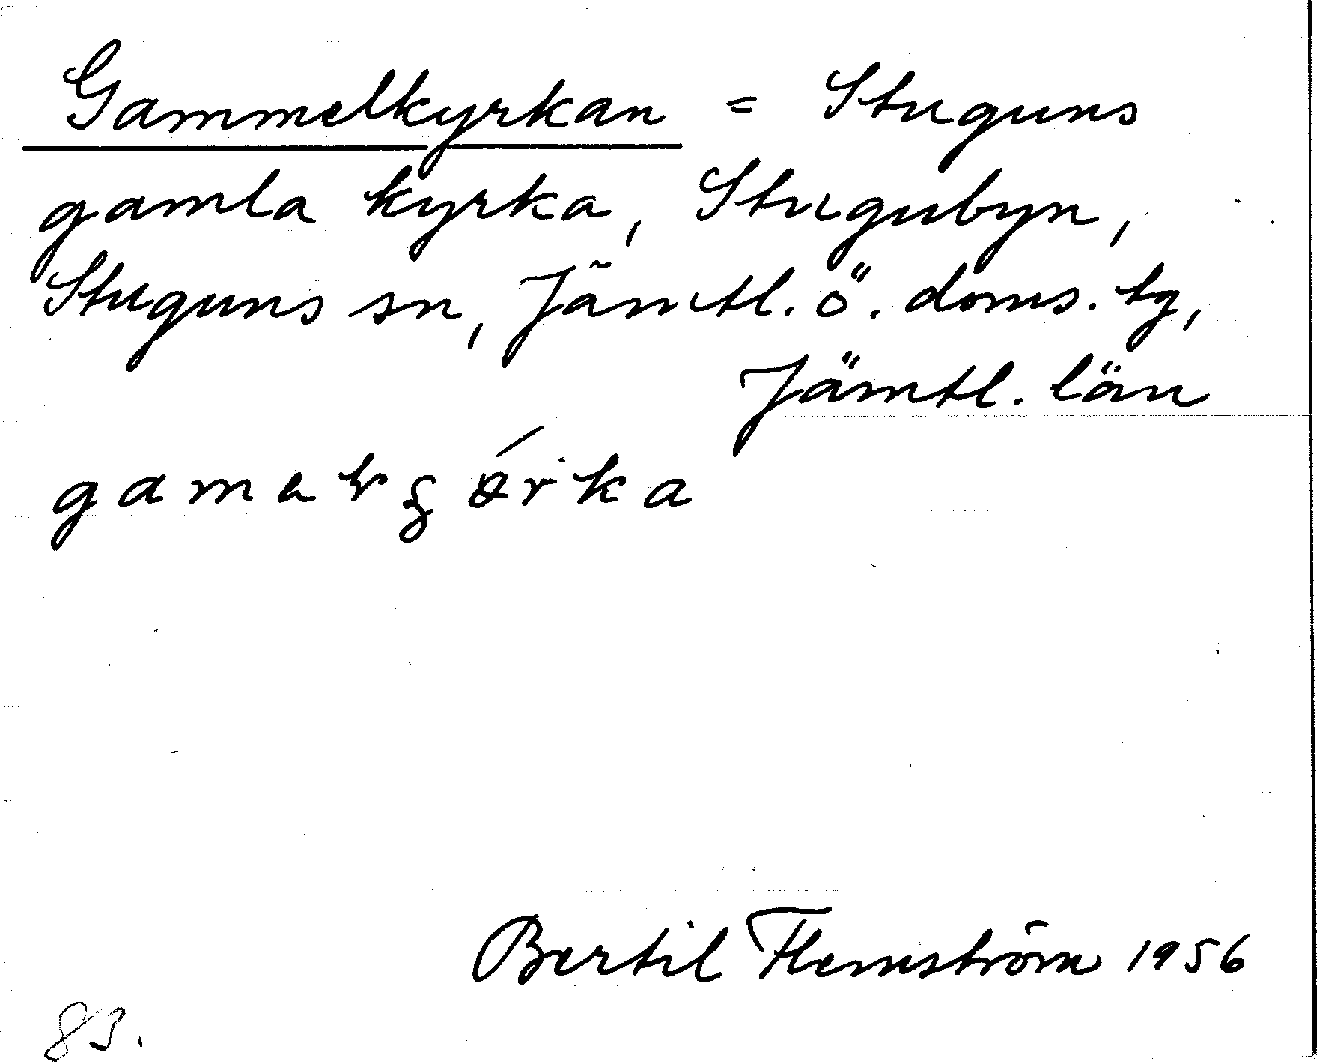 Gammelkyrkan = Stuguns
gamla kyrka, Stugubyn,
Stuguns sn, Jämtl. ö. doms. tg,
Jämtl. län
Bertil Flemström 1956
83.